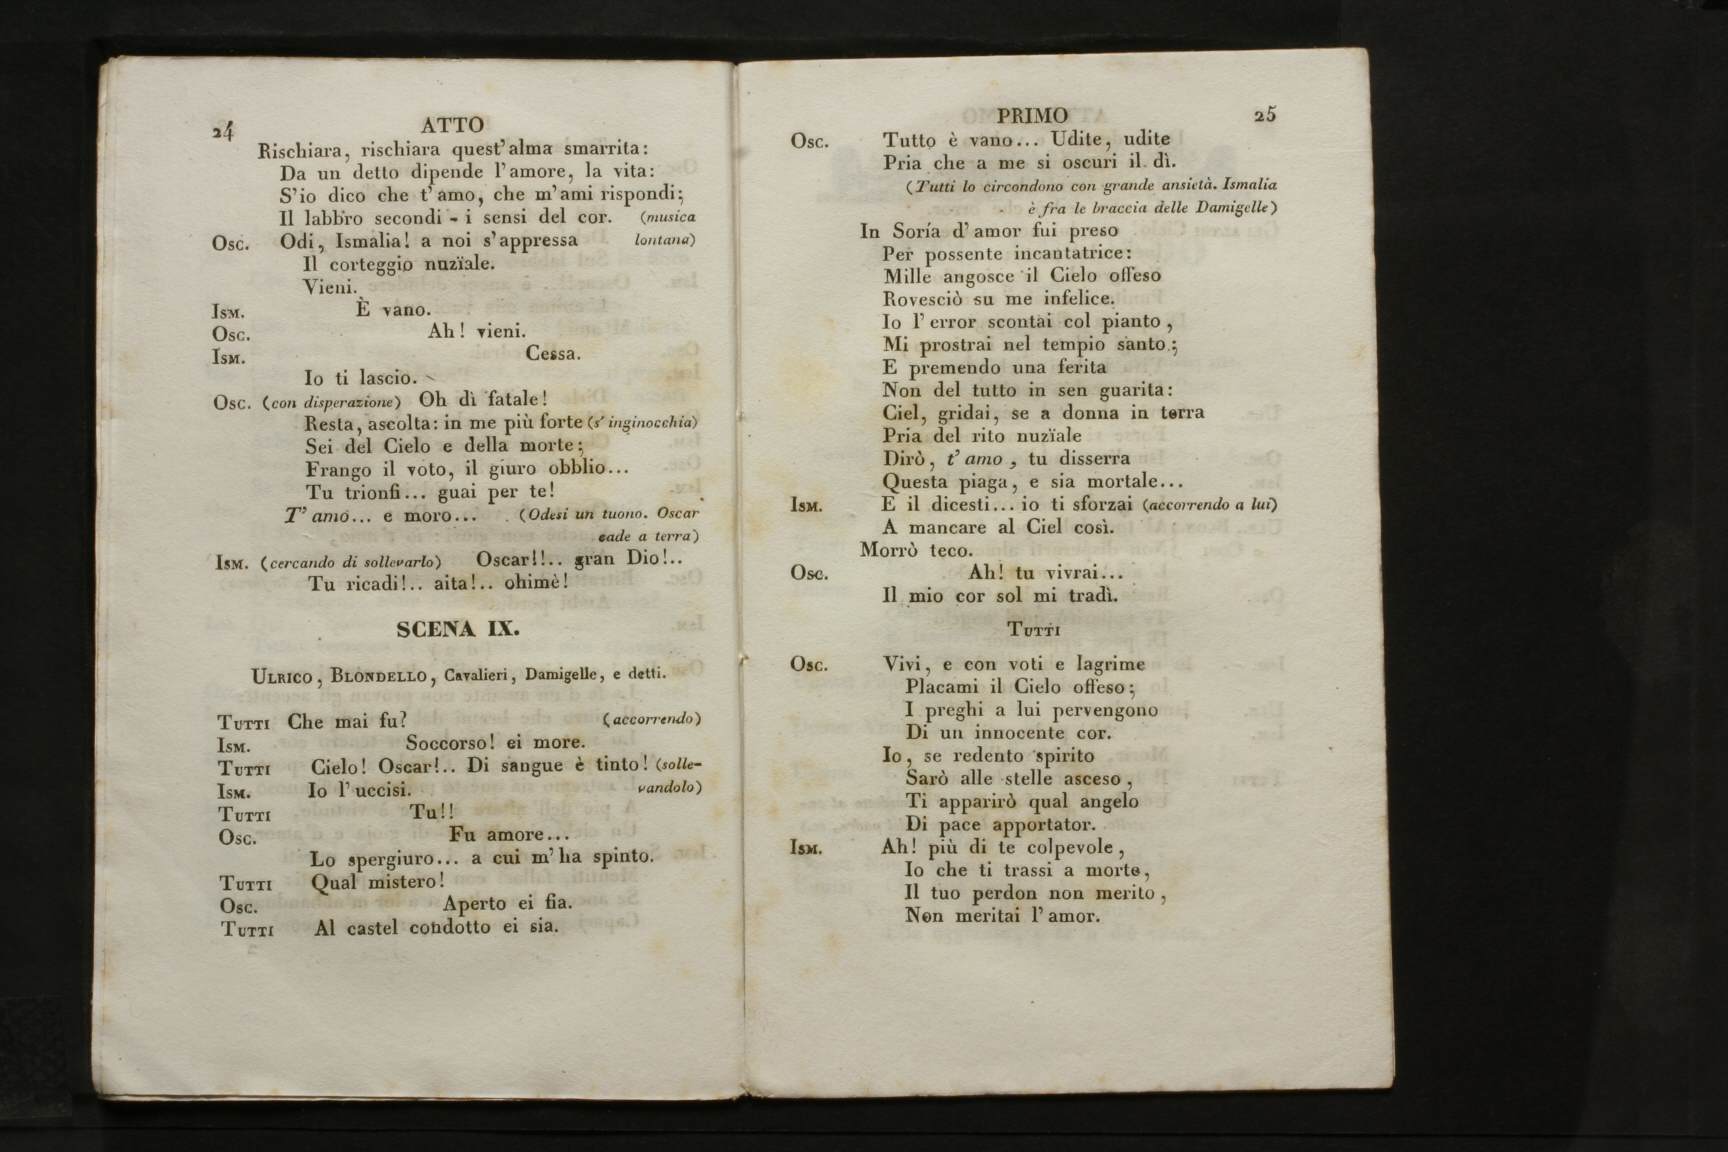 24
ATTO
Rischiara, rischiara quest'alma smarrita:
Da un detto dipende l'amore, la vita:
S'io dico che t'amo, che m'ami rispondi;
Il labbro secondi - i sensi del cor. (musica
Osc. Odi, Ismalia! a noi s'appressa lontana)
Il corteggio nuzïale.
Vieni.
Ism. È vano.
Osc. Ah! vieni.
Ism. Cessa.
Io ti lascio.
Osc. (con disperazione) Oh dì fatale!
Resta, ascolta: in me più forte (s'inginocchia)
Sei del Cielo e della morte;
Frango il voto, il giuro obblio...
Tu trionfi... guai per te!
T'amo... e moro... (Odesi un tuono. Oscar
cade a terra)
Ism. (cercando di sollevarlo) Oscar!!.. gran Dio!..
Tu ricadi!.. aita!.. ohimè!
SCENA IX.
Ulrico, Blondello, Cavalieri, Damigelle, e detti.
Tutti Che mai fu? (accorrendo)
Ism. Soccorso! ei more.
Tutti Cielo! Oscar!.. Di sangue è tinto! (solle-
Ism. Io l'uccisi. vandolo)
Tutti Tu!!
Osc. Fu amore...
Lo spergiuro... a cui m'ha spinto.
Tutti Qual mistero!
Osc. Aperto ei fia.
Tutti Al castel condotto ei sia.
PRIMO
25
Osc. Tutto è vano... Udite, udite
Pria che a me si oscuri il dì.
(Tutti lo circondono con grande ansietà. Ismalia
è fra le braccia delle Damigelle)
In Soría d'amor fui preso
Per possente incantatrice:
Mille angosce il Cielo offeso
Rovesciò su me infelice.
Io l'error scontai col pianto,
Mi prostrai nel tempio santo;
E premendo una ferita
Non del tutto in sen guarita:
Ciel, gridai, se a donna in terra
Pria del rito nuzïale
Dirò, t'amo, tu disserra
Questa piaga, e sia mortale...
Ism. E il dicesti... io ti sforzai (accorrendo a lui)
A mancare al Ciel così.
Morrò teco.
Osc. Ah! tu vivrai...
Il mio cor sol mi tradì.
Tutti
Osc. Vivi, e con voti e lagrime
Placami il Cielo offeso;
I preghi a lui pervengono
Di un innocente cor.
Io, se redento spirito
Sarò alle stelle asceso,
Ti apparirò qual angelo
Di pace apportator.
Ism. Ah! più di te colpevole,
Io che ti trassi a morte,
Il tuo perdon non merito,
Non meritai l'amor.